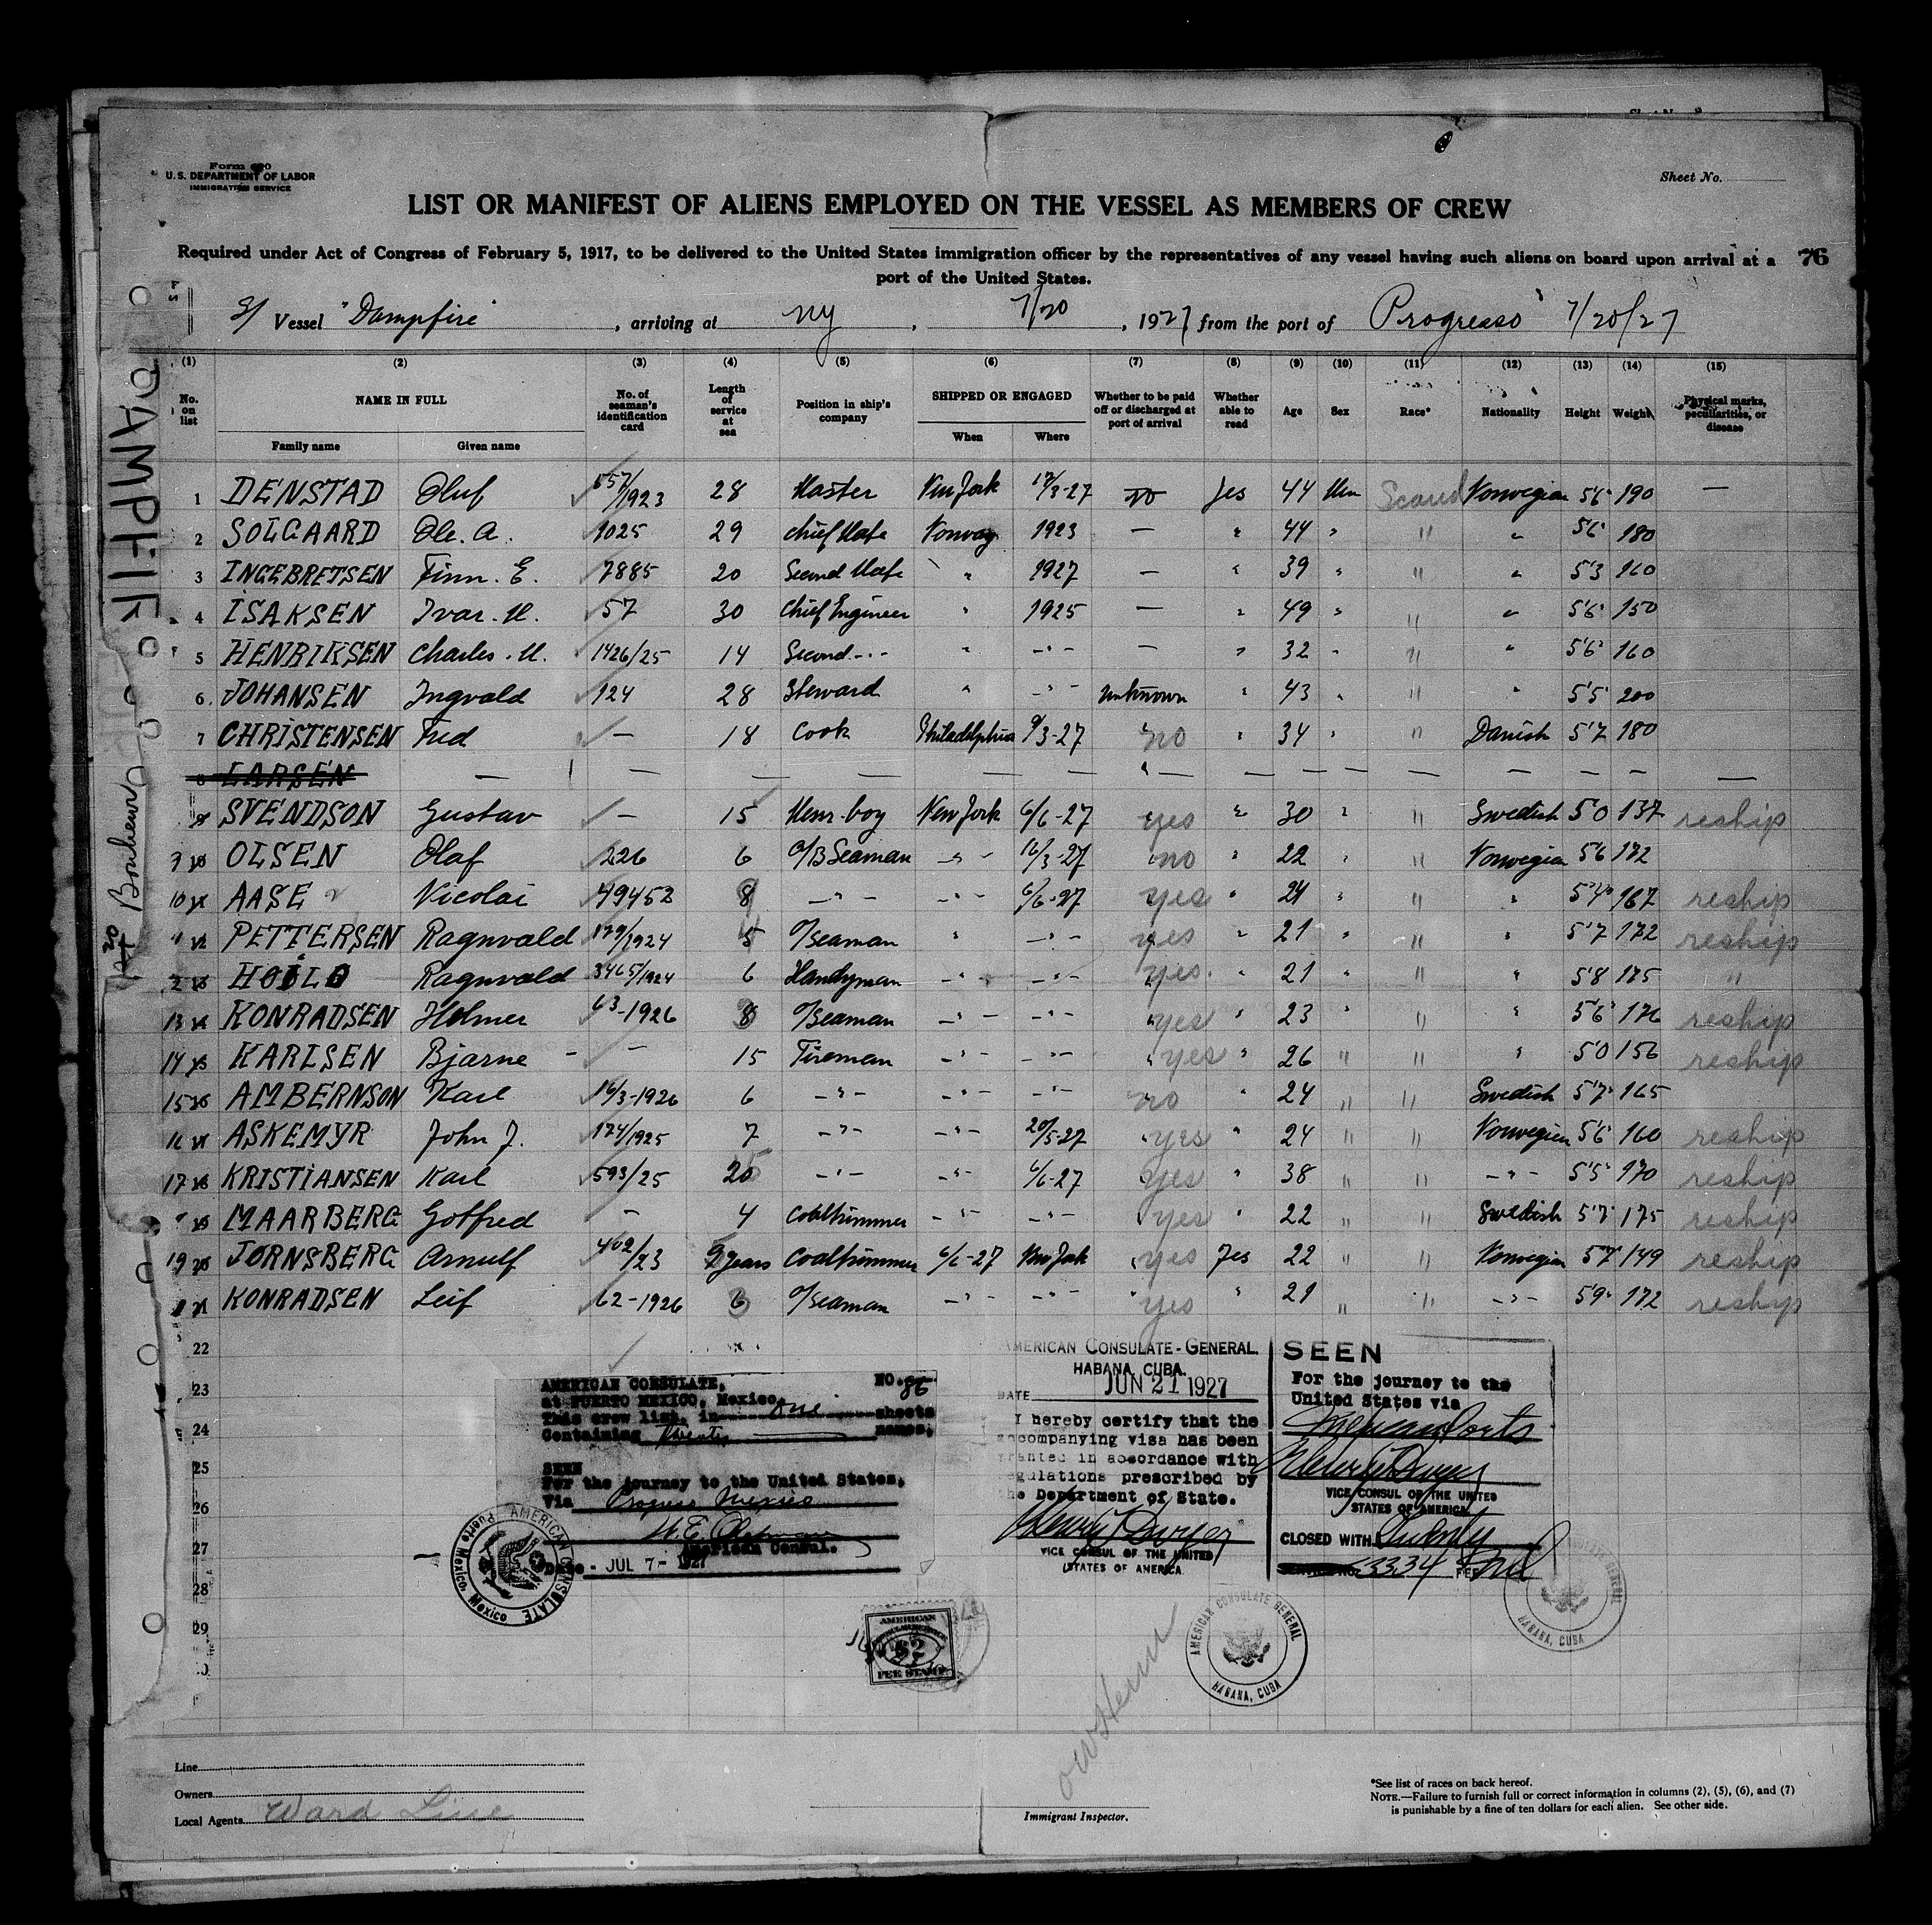 Form 680
U.S. DEPARTMENT OF LABOR
IMMIGRATION SERVICE
Sheet No.
LIST OR MANIFEST OF ALIENS EMPLOYED ON THE VESSEL AS MEMBERS OF CREW
Required under Act of Congress of February 5, 1917, to be delivered to the United States immigration officer by the representatives of any vessel having such aliens on board upon arrival at a
port of the United States.
76
S/ Vessel "Dampfire", arriving at NY, 7/20, 1927 from the port of Progresso 7/20/27
(1) (2) (3) (4) (5) (6) (7) (8) (9) (10) (11) (12) (13) (14) (15)
No. on list NAME IN FULL No. of seaman's identification card Length of service at sea Position in ship's company SHIPPED OR ENGAGED Whether to be paid off or discharged at port of arrival Whether able to read Age Sex Race* Nationality Height Weight Physical marks, peculiarities, or disease
Family name Given name When Where
1 DENSTAD Oluf 557/1923 28 Master New York 17/3-27 no Yes 44 Men Scand Norwegian 5'6" 190 —
2 SOLGAARD Ole. A. 1025 29 Chief Mate Norway 1923 — " 44 " " " 5'6" 180
3 INGEBRETSEN Finn. E. 7885 20 Second Mate " 1927 — " 39 " " " 5'3 160
4 ISAKSEN Ivar. M. 57 30 Chief Engineer " 1925 — " 49 " " " 5'6" 150
5 HENRIKSEN Charles. M. 1426/25 14 Second -"- " -"- — " 32 " " " 5'6" 160
6 JOHANSEN Ingvald 124 28 Steward " -"- unknown " 43 " " " 5'5" 200
7 CHRISTENSEN Fred — 18 Cook Philadelphia 9/3-27 no " 34 " " Danish 5'7 180
8 LARSEN — — — — — — — — — — — — — —
SVENDSON Gustav — 15 Mess-boy New York 6/6-27 yes " 30 " " Swedish 5'0 137 reship
9 OLSEN Olaf 226 6 O/B Seaman -"- 16/3-27 no " 22 " " Norwegian 5'6 172
10 AASE Nicolai 49452 8 -"- -"- 6/6-27 yes " 21 " " " 5'4" 167 reship
PETTERSEN Ragnvald 179/1924 5 O/Seaman " -"- yes " 21 " " " 5'7 172 reship
HOILO Ragnvald 3465/1924 6 Handyman -"- -"- yes " 21 " " " 5'8 175 "
13 KONRADSEN Holmer 63-1926 8 O/Seaman -"- -"- yes " 23 " " " 5'6" 176 reship
14 KARLSEN Bjarne — 15 Fireman -"- -"- yes " 26 " " " 5'0 156 reship
15 AMBERNSON Karl 16/3-1926 6 -"- -"- -"- no " 24 " " Swedish 5'7" 165
16 ASKEMYR John J. 174/1925 7 -"- -"- 20/5-27 yes " 24 " " Norwegian 5'6" 160 reship
17 KRISTIANSEN Karl 593/25 20 -"- -"- 6/6-27 yes " 38 " " -"- 5'5" 170 reship
MAARBERG Gotfred — 4 Coaltrimmer -"- -"- yes " 22 " " Swedish 5'7" 175 reship
19 JORNSBERG Arnulf 402/23 2 years Coaltrimmer 6/6-27 New York yes Yes 22 " " Norwegian 5'7" 149 reship
KONRADSEN Leif 62-1926 6 O/Seaman -"- -"- yes " 21 " " -"- 5'9" 172 reship
22
23
24
25
26
27
28
29
DAMPFIRE
Bonheur
AMERICAN CONSULATE, NO. 86
at PUERTO MEXICO, Mexico,
This crew list, in one sheets
Containing twenty names,
SEEN
For the journey to the United States,
Via Progreso Mexico
American Consul.
Date - JUL 7 - 1927
AMERICAN CONSULATE
Puerto Mexico, Mexico
AMERICAN
FEE STAMP
AMERICAN CONSULATE-GENERAL.
HABANA, CUBA.
DATE JUN 21 1927
I hereby certify that the
accompanying visa has been
granted in accordance with
regulations prescribed by
the Department of State.
VICE CONSUL OF THE UNITED
STATES OF AMERICA
AMERICAN CONSULATE GENERAL
HABANA, CUBA
SEEN
For the journey to the
United States via
Mexican Ports
VICE CONSUL OF THE UNITED
STATES OF AMERICA
CLOSED WITH Twenty
SERVICE NO. 3334 FEE
HABANA, CUBA
Line
Owners
Local Agents Ward Line
Immigrant Inspector.
*See list of races on back hereof.
NOTE.—Failure to furnish full or correct information in columns (2), (5), (6), and (7)
is punishable by a fine of ten dollars for each alien. See other side.